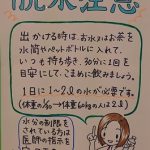 脱水注意
出かける時は、お水かお茶を
水筒やペットボトルに入れて、
いつも持ち歩き、30分に1回を
目安にして、こまめに飲みましょう。
1日に1~2ℓの水が必要です。
(体重の1/30→体重60kgの人は2ℓ)
水分の制限を
されている方は
医師の指示を